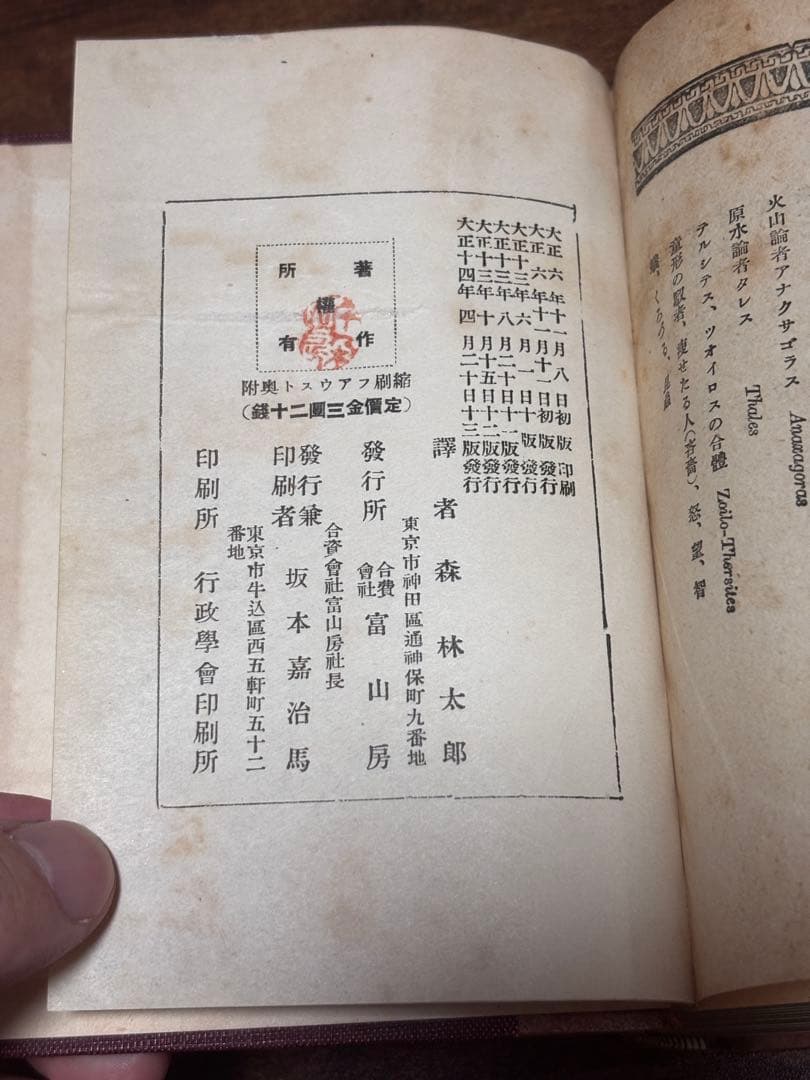 火山論者アナクサゴラス Anaxagoras
原水論者タレス Thales
テルシテス、ツオイロスの合體 Zoilo-Thersites
童形の馭者、痩せたる人(吝嗇)、怒、望、智
大正六年十一月八日初版印刷
大正六年十一月十一日初版發行
大正十三年六月一日十版發行
大正十三年八月二十日十一版發行
大正十三年十月十五日十二版發行
大正十四年四月二十日十三版發行
著作權所有
縮刷フアウスト奥附
(定價金三圓二十錢)
譯者 森林太郎
東京市神田區通神保町九番地
發行所 合資會社 富山房
合資會社富山房社長
發行兼印刷者 坂本嘉治馬
東京市牛込區西五軒町五十二番地
印刷所 行政學會印刷所